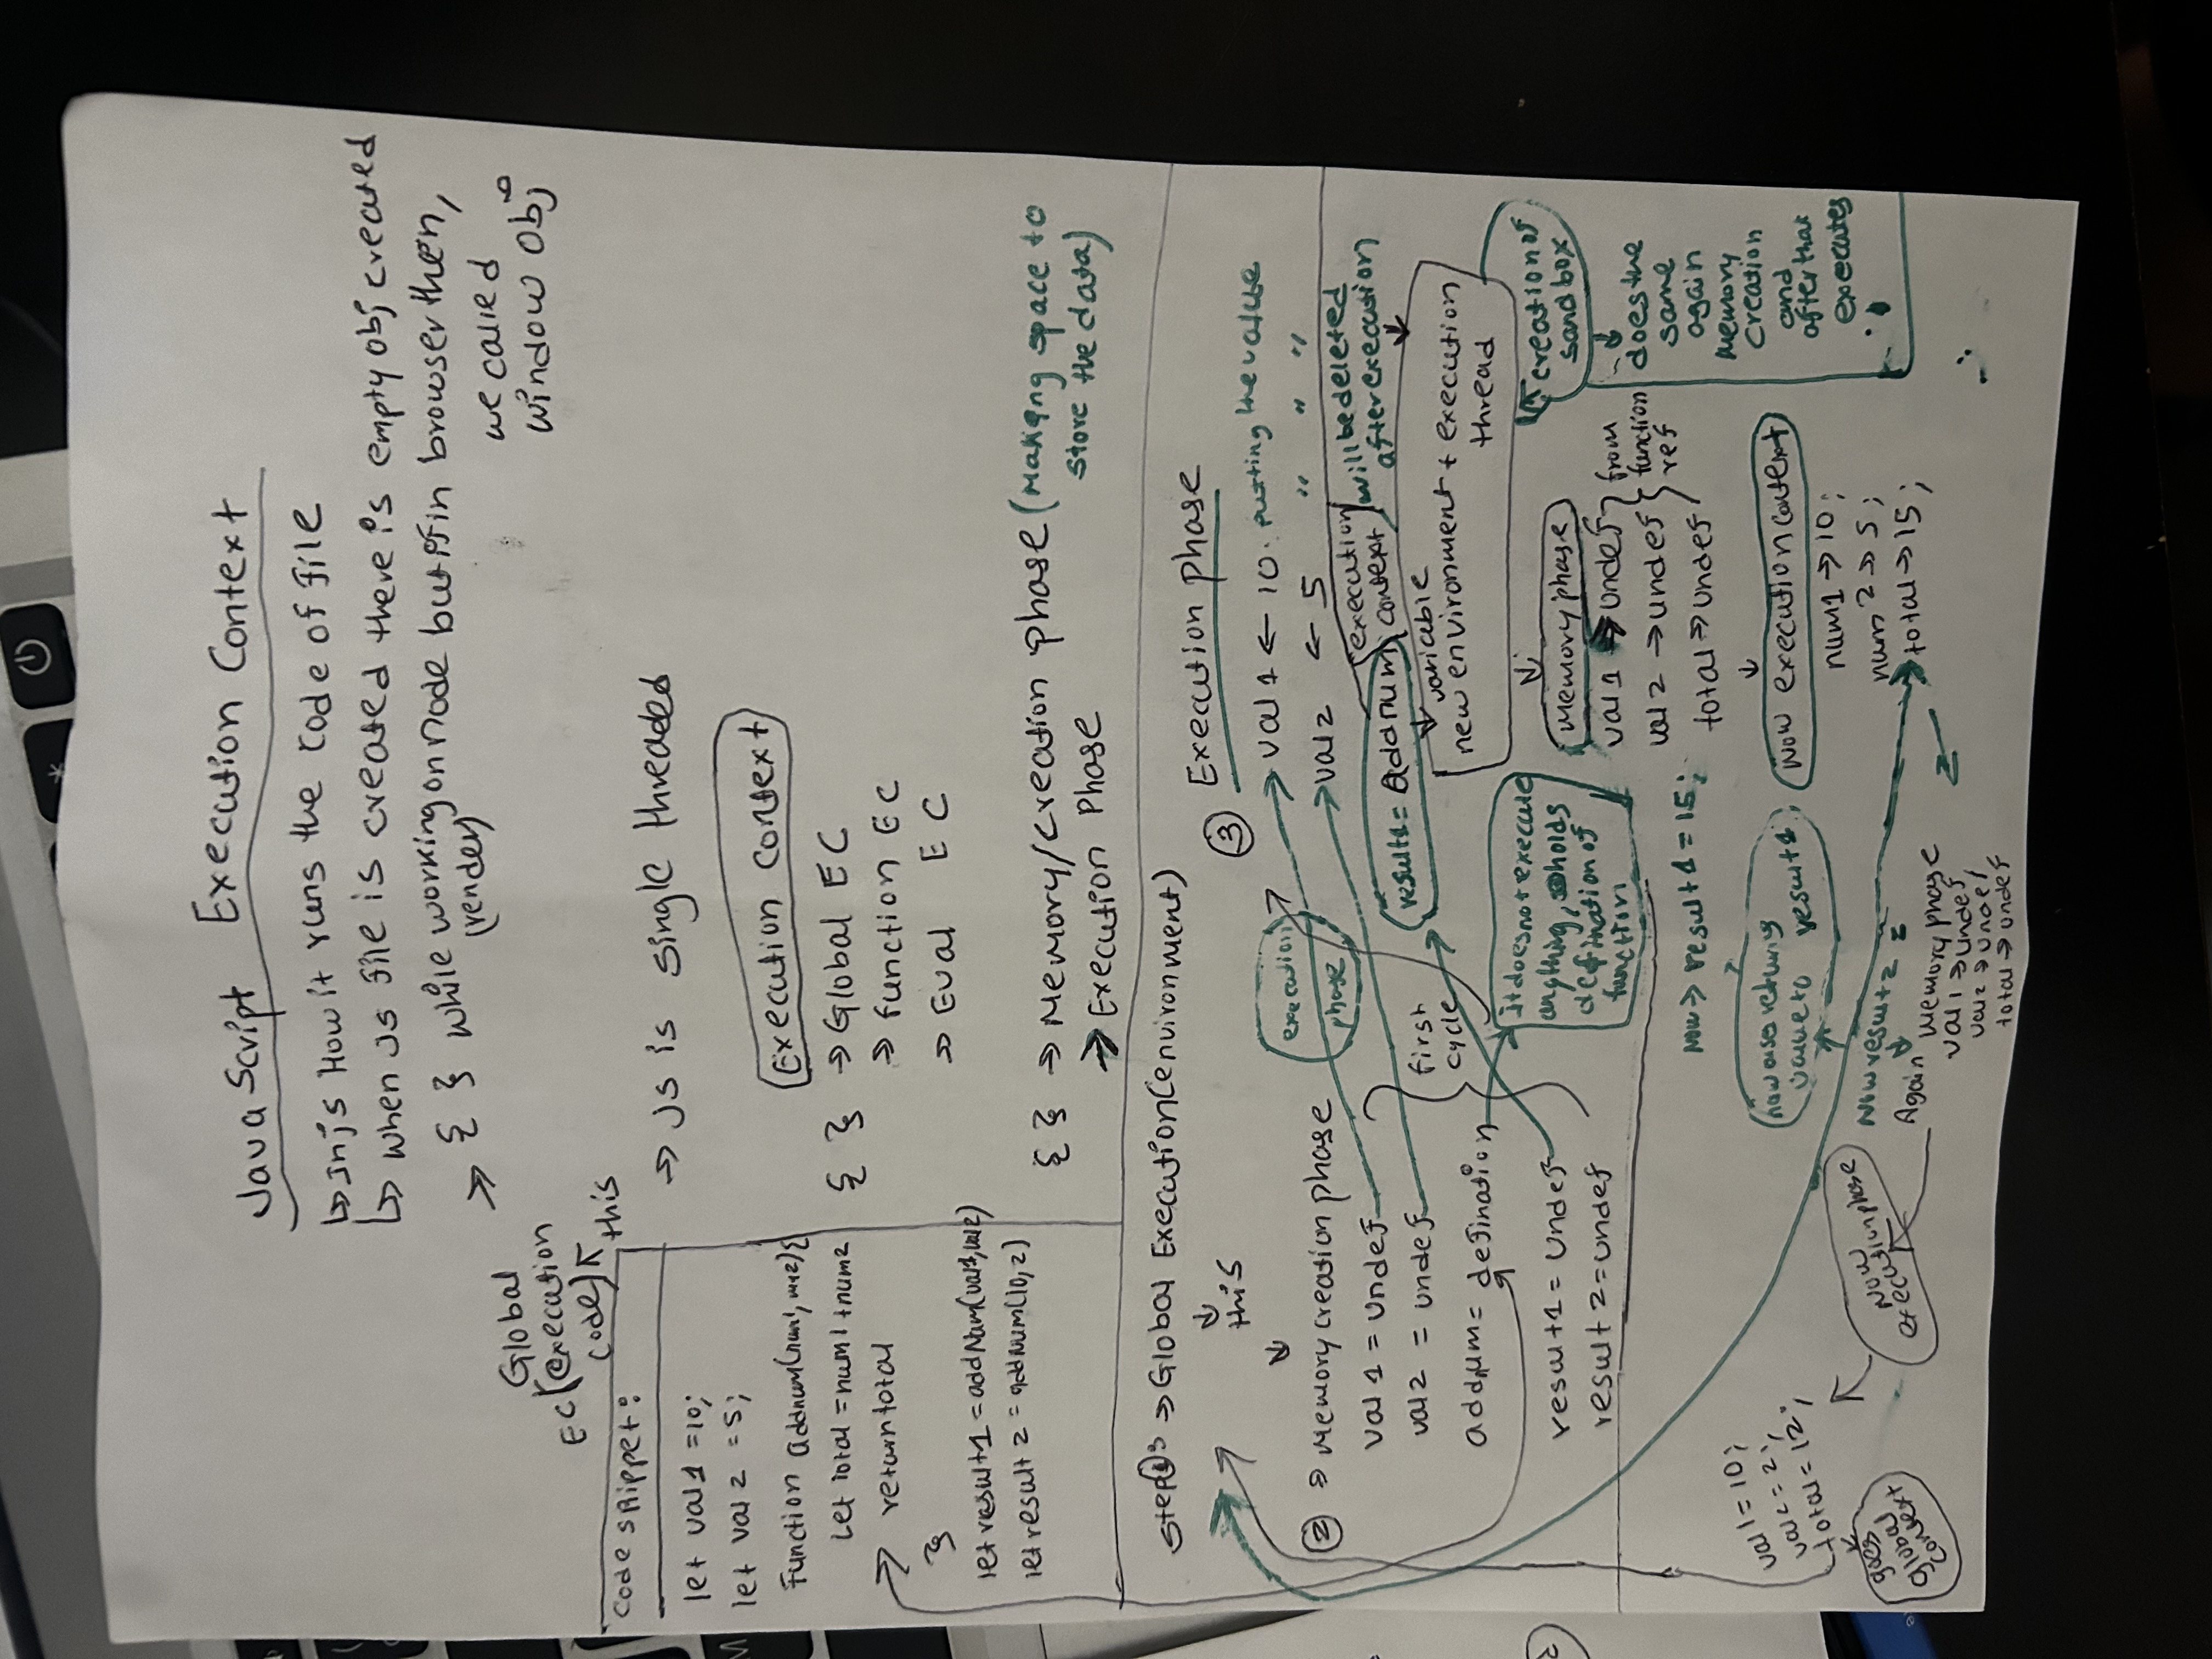 JavaScript Execution Context
↳ In js How it runs the code of file
↳ When Js file is created there is empty obj created
→ { } while working on node but if in browser then,
(render)
we called
window obj
Global
EC (execution
code)
this
code snippet:
let val1 = 10;
let val2 = 5;
Function addnum(num1, num2){
Let total = num1 + num2
return total
}
let result1 = addNum(val1, val2)
let result2 = addNum(10, 2)
→ Js is single threaded
Execution context
{ } → Global EC
→ function EC
→ Eval EC
{ } → Memory/creation phase (Making space to
store the data)
→ Execution Phase
Step 1: → Global Execution (environment)
↓
this
↓
② → Memory creation phase
val1 = undef
val2 = undef
addnum = defination
result1 = Undef
result2 = undef
first
cycle
execution
phase
It does not execute
anything, holds
defination of
function
③ Execution phase
val1 ← 10. putting the value
val2 ← 5 " " "
result1 = addnum
execution
context
will be deleted
after execution
variable
new environment + execution
thread
creation of
sandbox
↓
does the
same
again
Memory
Creation
and
after that
executes
↓
Memory phase
val1 → undef
val2 → undef
total → undef
from
function
ref
↓
Now execution context
num1 → 10;
num2 → 5;
total → 15;
Now → result1 = 15;
now returing
value to result1
Now result2 =
↓
Again memory phase
val1 → undef
val2 → undef
total → undef
Now
execution phase
val1 = 10;
val2 = 2;
total = 12;
goes
global
context